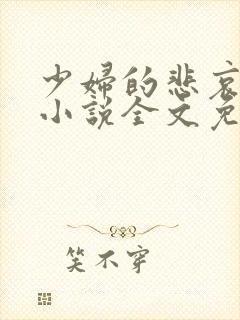 少妇的悲哀
小说全文免
笑不穿